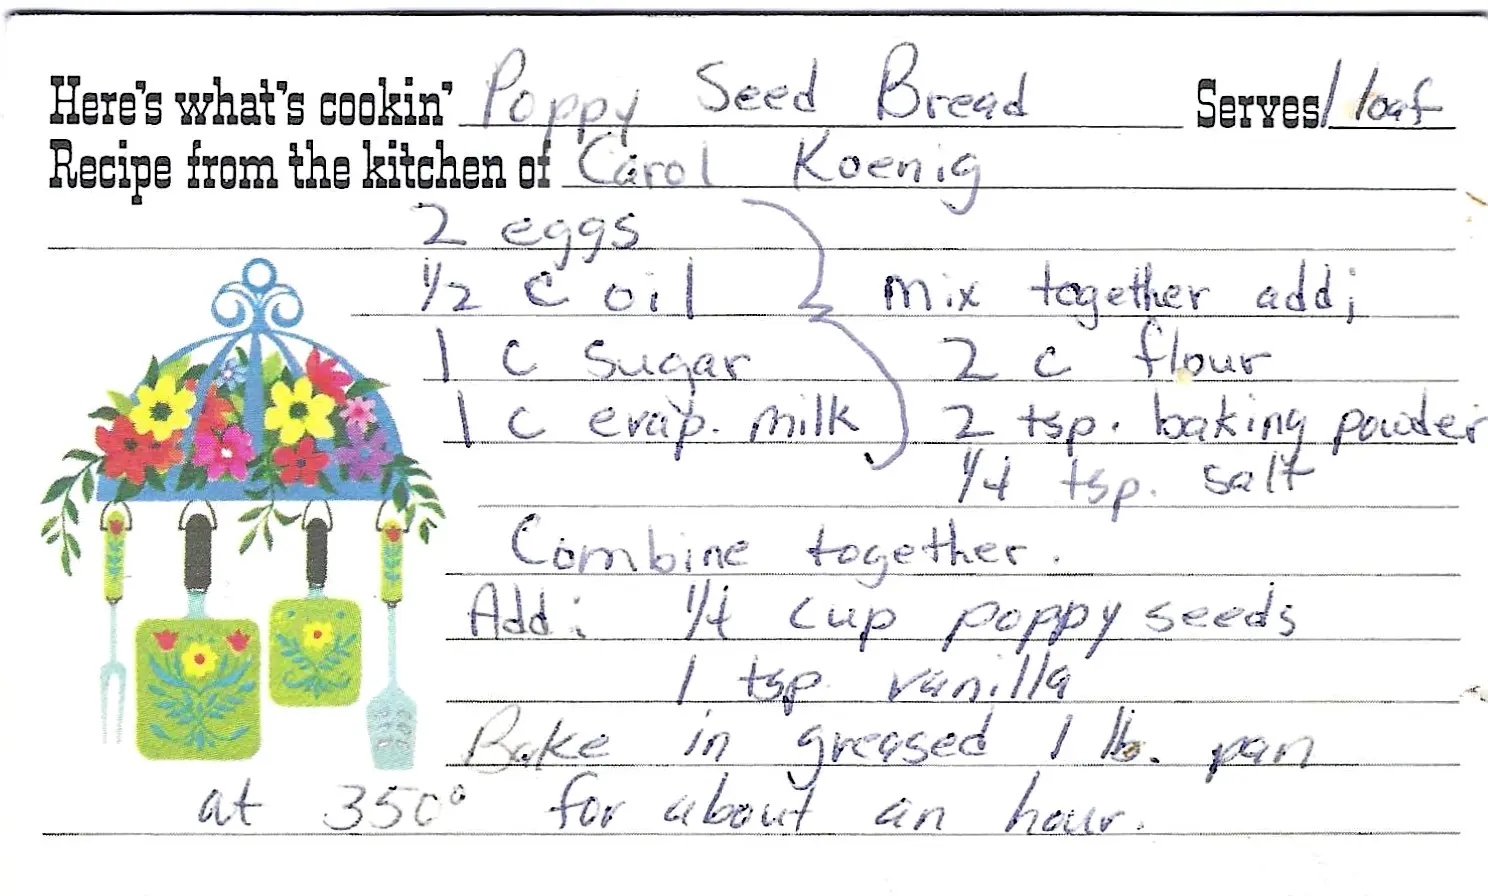 Here's what's cookin' Poppy Seed Bread Serves 1 loaf
Recipe from the kitchen of Carol Koenig
2 eggs
1/2 c oil mix together add;
1 c sugar 2 c flour
1 c evap. milk 2 tsp. baking powder
1/4 tsp. salt
Combine together.
Add: 1/4 cup poppy seeds
1 tsp. vanilla
Bake in greased 1 lb. pan
at 350° for about an hour.